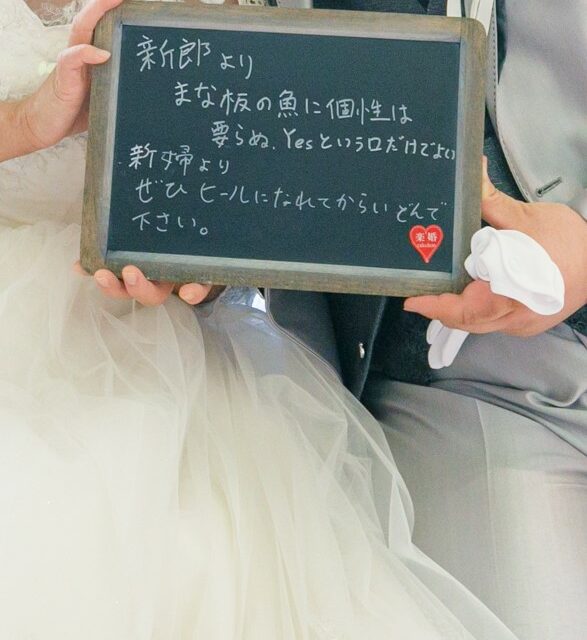 新郎より
まな板の魚に個性は
要らぬ、Yesという口だけでよい
新婦より
ぜひ ヒールになれてからいどんで
下さい。
楽婚